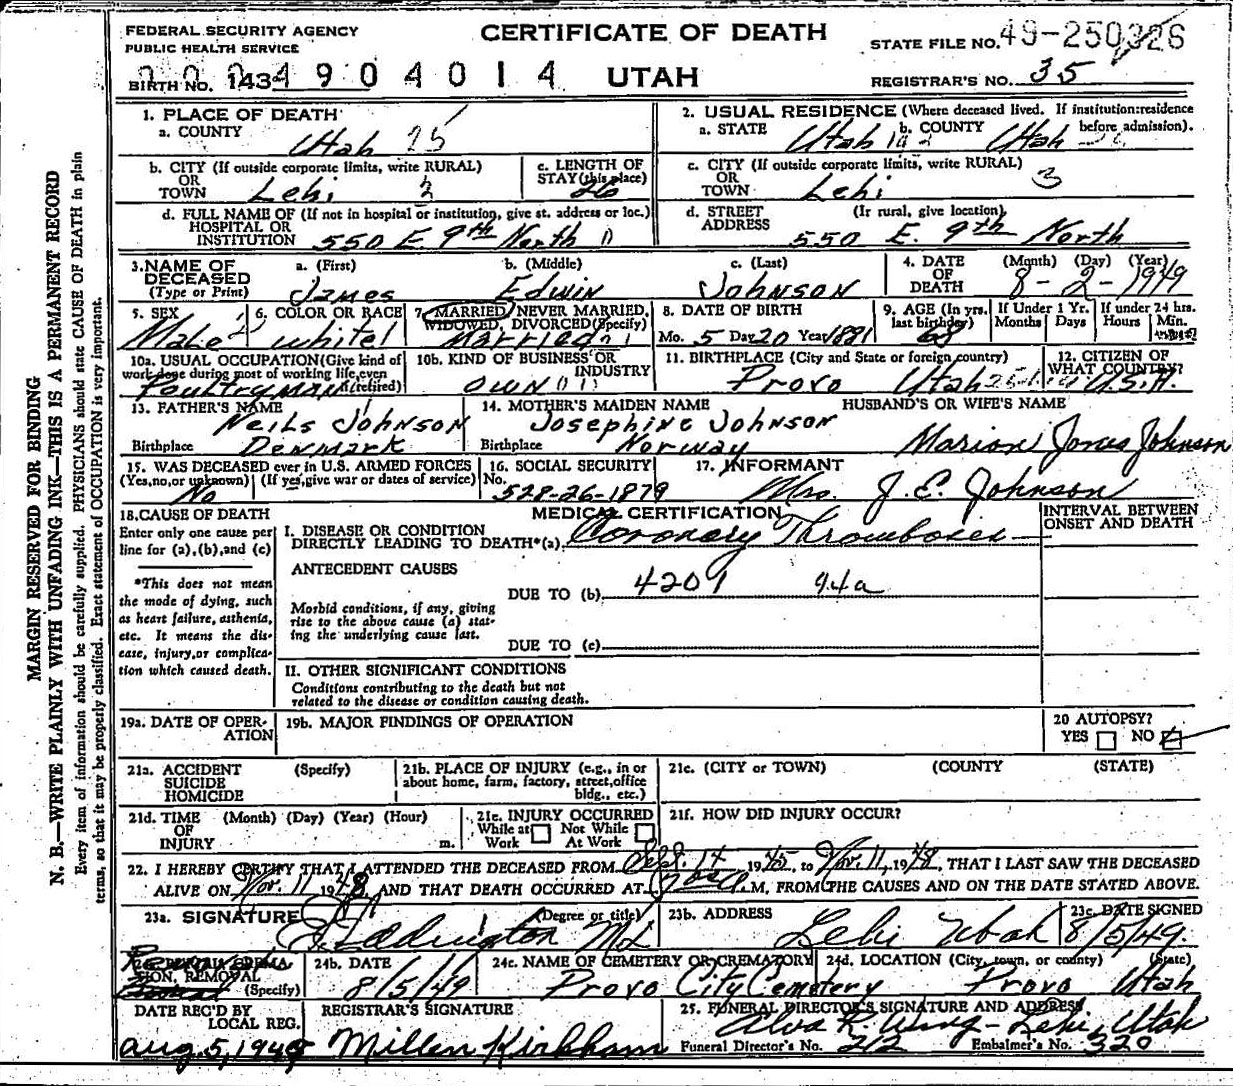 FEDERAL SECURITY AGENCY
PUBLIC HEALTH SERVICE
CERTIFICATE OF DEATH
STATE FILE NO. 49-250326
BIRTH NO. 143 4904014 UTAH
REGISTRAR'S NO. 35
MARGIN RESERVED FOR BINDING
N. B.—WRITE PLAINLY WITH UNFADING INK—THIS IS A PERMANENT RECORD
Every item of information should be carefully supplied. PHYSICIANS should state CAUSE OF DEATH in plain
terms, so that it may be properly classified. Exact statement of OCCUPATION is very important.
1. PLACE OF DEATH
a. COUNTY Utah 25
2. USUAL RESIDENCE (Where deceased lived. If institution:residence
before admission).
a. STATE Utah b. COUNTY Utah
b. CITY (If outside corporate limits, write RURAL)
OR
TOWN Lehi 3
c. LENGTH OF
STAY (this place)
26
c. CITY (If outside corporate limits, write RURAL)
OR
TOWN Lehi 3
d. FULL NAME OF (If not in hospital or institution, give st. address or loc.)
HOSPITAL OR
INSTITUTION 550 E. 9th North
d. STREET (If rural, give location)
ADDRESS 550 E. 9th North
3. NAME OF
DECEASED
(Type or Print)
a. (First) James
b. (Middle) Edwin
c. (Last) Johnson
4. DATE
OF
DEATH
(Month) (Day) (Year)
8-2-1949
5. SEX
Male
6. COLOR OR RACE
White
7. MARRIED, NEVER MARRIED,
WIDOWED, DIVORCED (Specify)
Married
8. DATE OF BIRTH
Mo. 5 Day 20 Year 1881
9. AGE (In yrs.
last birthday)
68
If Under 1 Yr.
Months Days
If under 24 hrs.
Hours Min.
10a. USUAL OCCUPATION (Give kind of
work done during most of working life, even
if retired)
Poultryman
10b. KIND OF BUSINESS OR
INDUSTRY
Own
11. BIRTHPLACE (City and State or foreign country)
Provo Utah
12. CITIZEN OF
WHAT COUNTRY?
U.S.A.
13. FATHER'S NAME
Neils Johnson
Birthplace Denmark
14. MOTHER'S MAIDEN NAME
Josephine Johnson
Birthplace Norway
HUSBAND'S OR WIFE'S NAME
Marion Jones Johnson
15. WAS DECEASED ever in U.S. ARMED FORCES
(Yes, no, or unknown) (If yes, give war or dates of service)
No
16. SOCIAL SECURITY
No.
528-26-1879
17. INFORMANT
Mrs. J. E. Johnson
18. CAUSE OF DEATH
Enter only one cause per
line for (a), (b), and (c)
*This does not mean
the mode of dying, such
as heart failure, asthenia,
etc. It means the dis-
ease, injury, or complica-
tion which caused death.
MEDICAL CERTIFICATION
INTERVAL BETWEEN
ONSET AND DEATH
I. DISEASE OR CONDITION
DIRECTLY LEADING TO DEATH*(a) Coronary Thrombosis
ANTECEDENT CAUSES
DUE TO (b) 4201 94a
Morbid conditions, if any, giving
rise to the above cause (a) stat-
ing the underlying cause last.
DUE TO (c)
II. OTHER SIGNIFICANT CONDITIONS
Conditions contributing to the death but not
related to the disease or condition causing death.
19a. DATE OF OPER-
ATION
19b. MAJOR FINDINGS OF OPERATION
20 AUTOPSY?
YES NO
21a. ACCIDENT (Specify)
SUICIDE
HOMICIDE
21b. PLACE OF INJURY (e.g., in or
about home, farm, factory, street, office
bldg., etc.)
21c. (CITY or TOWN) (COUNTY (STATE)
21d. TIME (Month) (Day) (Year) (Hour)
OF
INJURY m.
21e. INJURY OCCURRED
While at Work Not While At Work
21f. HOW DID INJURY OCCUR?
22. I HEREBY CERTIFY THAT I ATTENDED THE DECEASED FROM Sept. 14 1945, to Nov. 11, 1948, THAT I LAST SAW THE DECEASED
ALIVE ON Nov. 11 1948, AND THAT DEATH OCCURRED AT M, FROM THE CAUSES AND ON THE DATE STATED ABOVE.
23a. SIGNATURE (Degree or title)
Eddington MD
23b. ADDRESS
Lehi Utah
23c. DATE SIGNED
8/5/49.
24a. BURIAL, CREMA-
TION, REMOVAL
(Specify)
24b. DATE
8/5/49
24c. NAME OF CEMETERY OR CREMATORY
Provo City Cemetery
24d. LOCATION (City, town, or county) (State)
Provo Utah
DATE REC'D BY
LOCAL REG.
Aug. 5, 1949
REGISTRAR'S SIGNATURE
Millen Kirkham
25. FUNERAL DIRECTOR'S SIGNATURE AND ADDRESS
Alva R. Wing - Lehi, Utah
Funeral Director's No. 212 Embalmer's No. 320